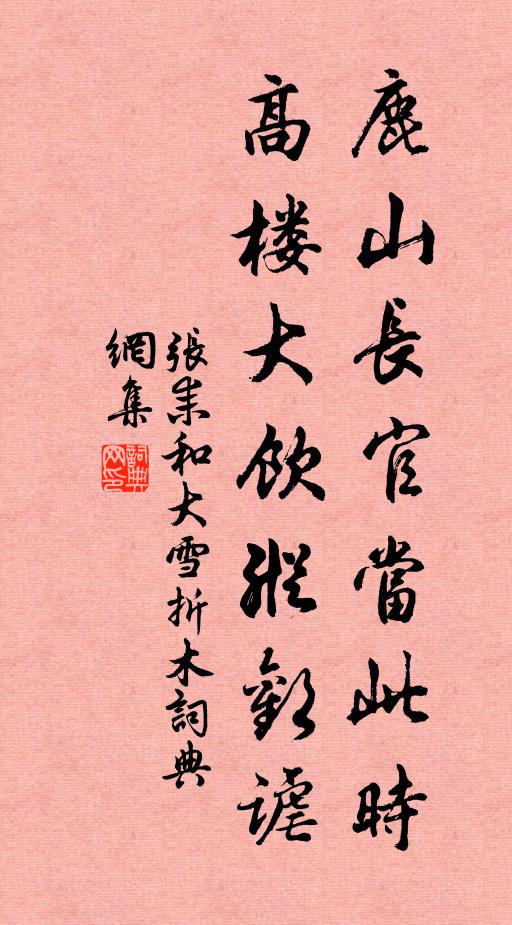 鹿山長官當此時
髙楼大飲縱歡謔
張耒和大雪折木詞典
網集
詞典
网印